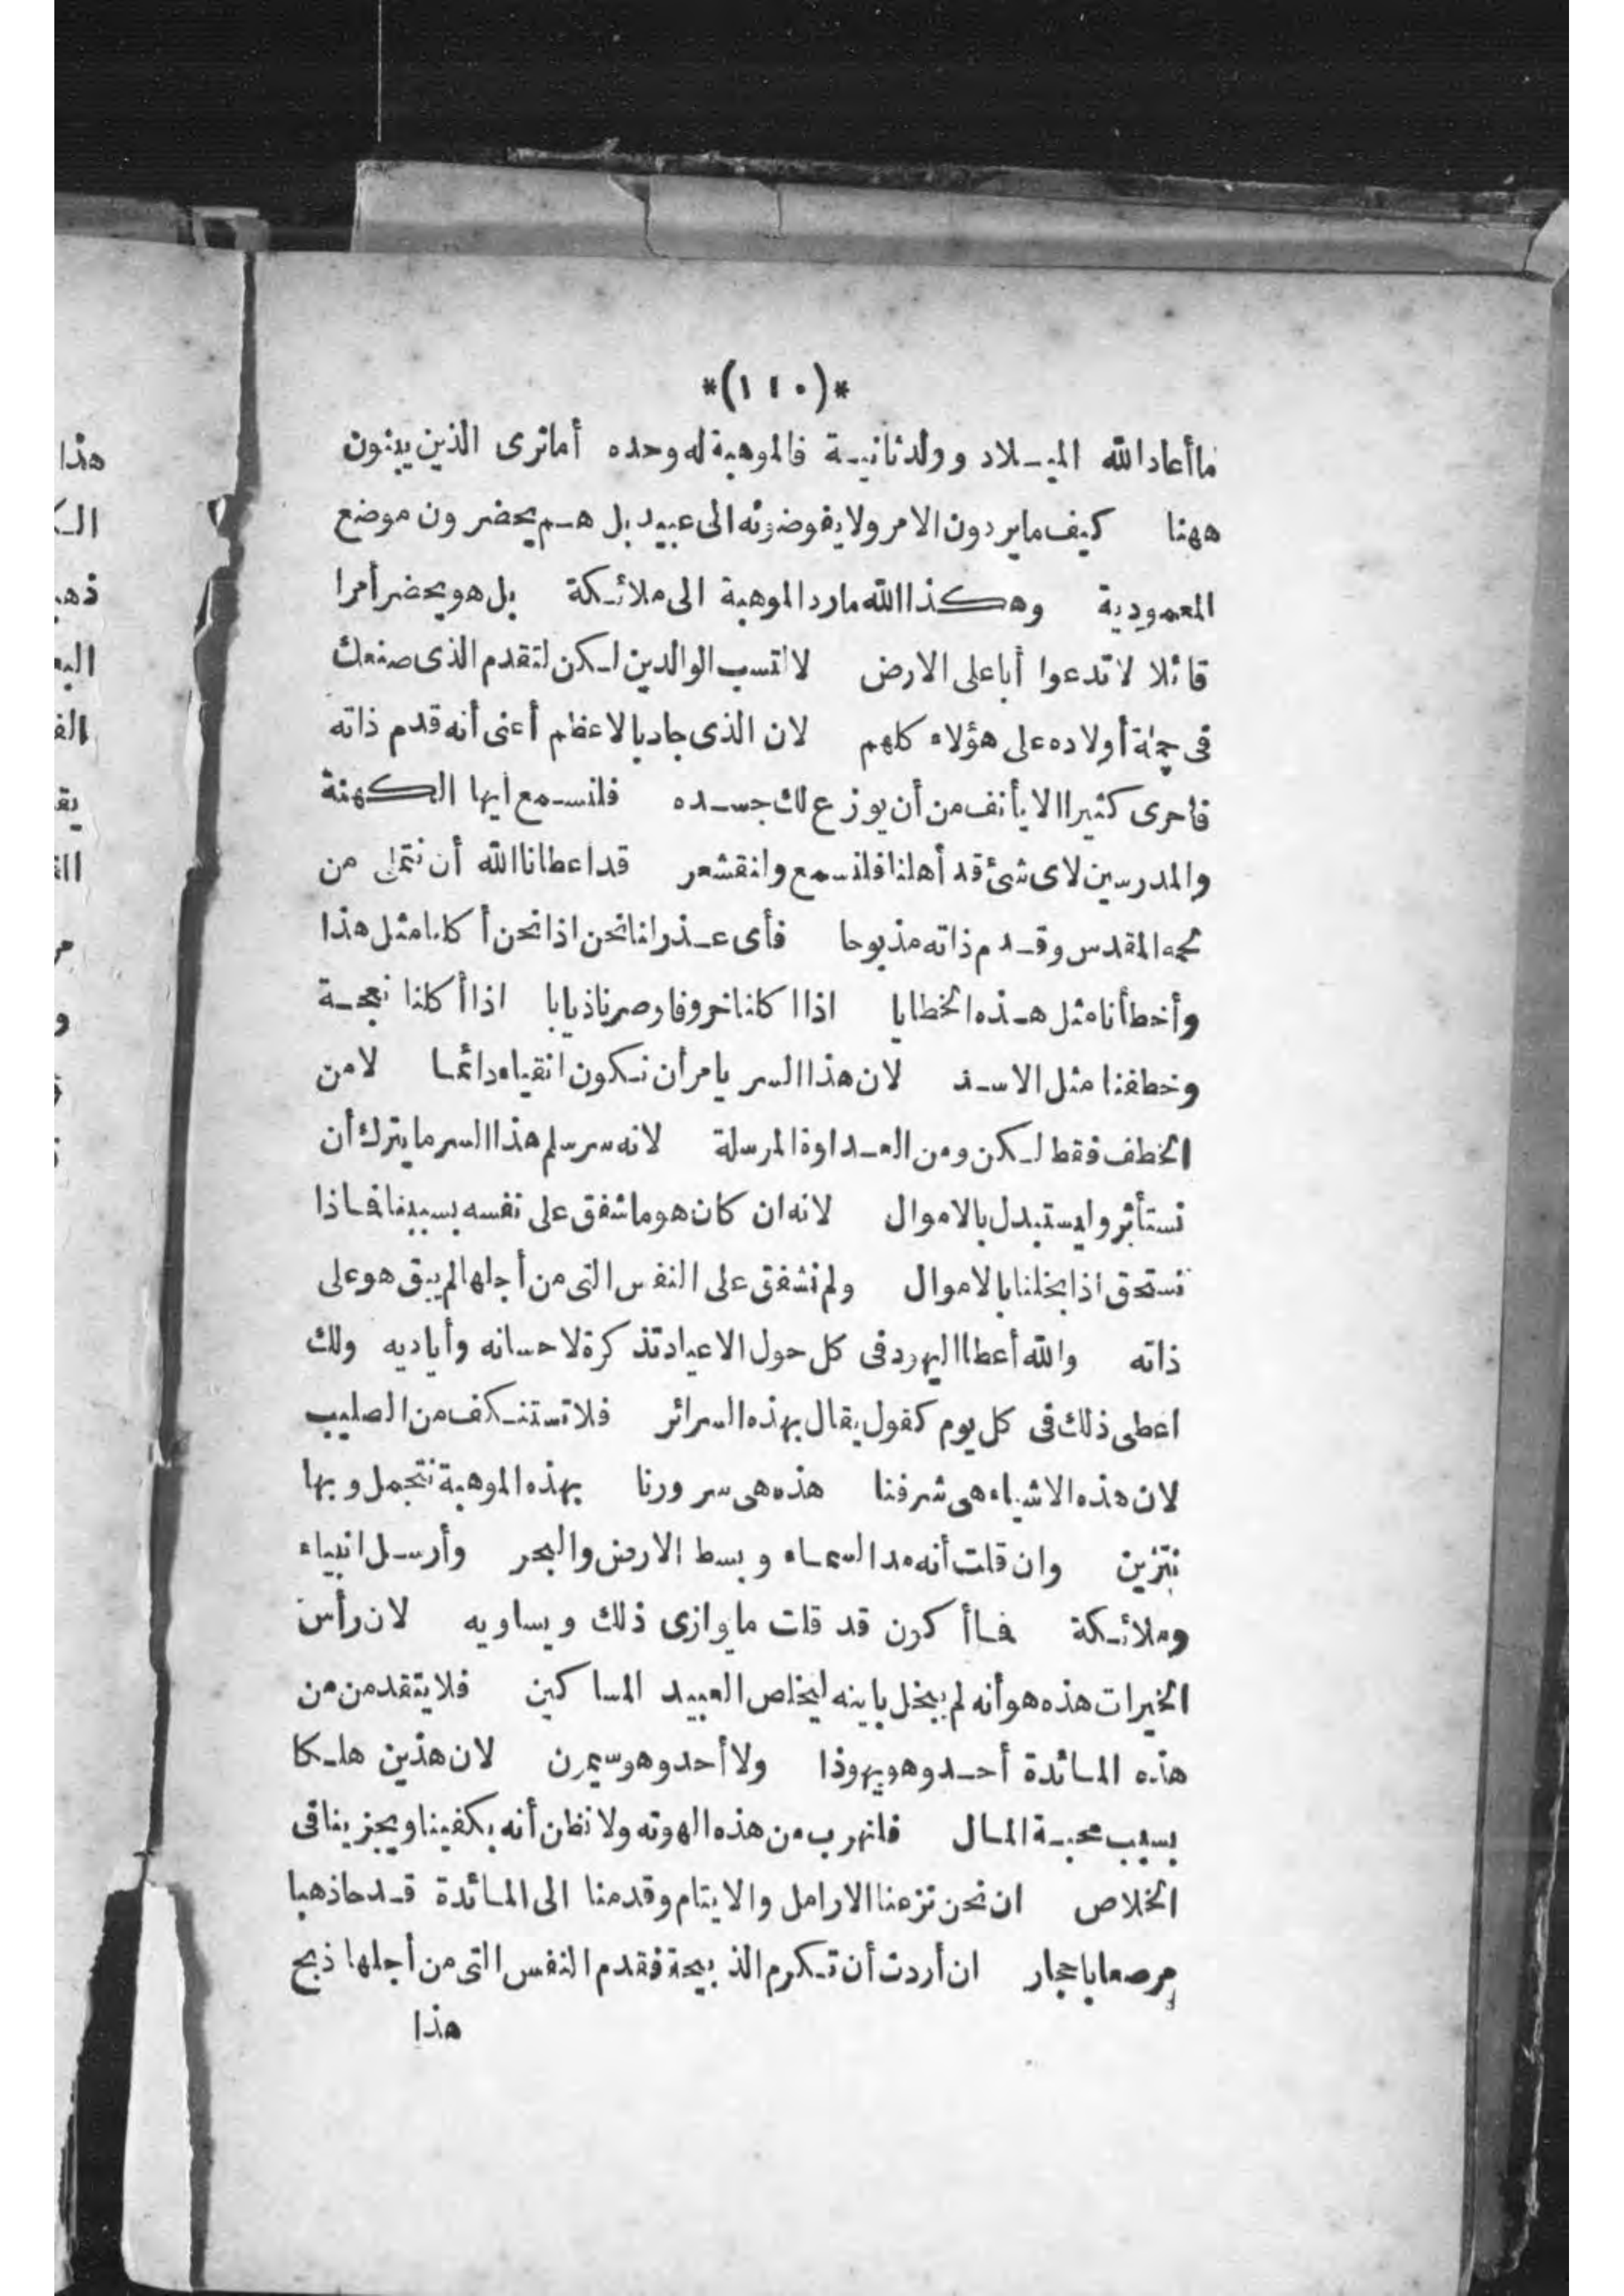 *(١١٠)*
ما أعاد الله الميلاد وولد ثانية فالموهبة له وحده أما ترى الذين يبنون
ههنا كيف ما يردون الامر ولا يفوضونه الى عبيد بل هم يحضرون موضع
المعمودية وهكذا الله ما رد الموهبة الى ملائكة بل هو يحضر أمرا
قائلا لا تدعوا أبا على الارض لا لتسب الوالدين لكن لتقدم الذى صنعك
فى جملة أولاده على هؤلاء كلهم لان الذى جاد بالاعظم أعنى أنه قدم ذاته
فاحرى كثيرا الا يأنف من أن يوزع لك جسده فلنسمع ايها الكهنة
والمدرسين لاى شئ قد أهلنا فلنسمع وانقشعر قد اعطانا الله أن نتملى من
لحمه المقدس وقدم ذاته مذبوحا فأى عذر لنا نحن اذا نحن أكلنا مثل هذا
وأخطأنا مثل هذه الخطايا اذا اكلنا خروفا وصرنا ذيابا اذا أكلنا نعجة
وخطفنا مثل الاسد لان هذا السر يامر أن نكون انقياء دائما لا من
الخطف فقط لكن ومن العداوة المرسلة لانه سر سلم هذا السر ما يترك أن
نستأثر وليستبدل بالاموال لانه ان كان هو ما شفق على نفسه بسببنا فماذا
نستحق اذا بخلنا بالاموال ولم نشفق على النفس التى من أجلها لم يبق هو على
ذاته والله أعطا اليهود فى كل حول الاعياد تذكرة لاحسانه وأياديه ولك
اعطى ذلك فى كل يوم كقول يقال بهذه السرائر فلا تستنكف من الصليب
لان هذه الاشياء هى شرفنا هذه هى سرورنا بهذه الموهبة نتجمل وبها
نتزين وان قلت أنه مد السماء وبسط الارض والبحر وأرسل انبياء
وملائكة فما أكون قد قلت ما وازى ذلك ويساويه لان رأس
الخيرات هذه هو أنه لم يبخل بابنه ليخلص العبيد المساكين فلا يتقدمن من
هذه المائدة أحد وهو يهوذا ولا أحد وهو سيمرن لان هذين هلكا
بسبب محبة المال فلنهرب من هذه الهوته ولا نظن أنه يكفينا ويجزينا فى
الخلاص ان نحن نزعنا الارامل والايتام وقدمنا الى المائدة قدحا ذهبا
مرصعا باحجار ان أردت أن تكرم الذبيحة فقدم النفس التى من أجلها ذبح
هذا